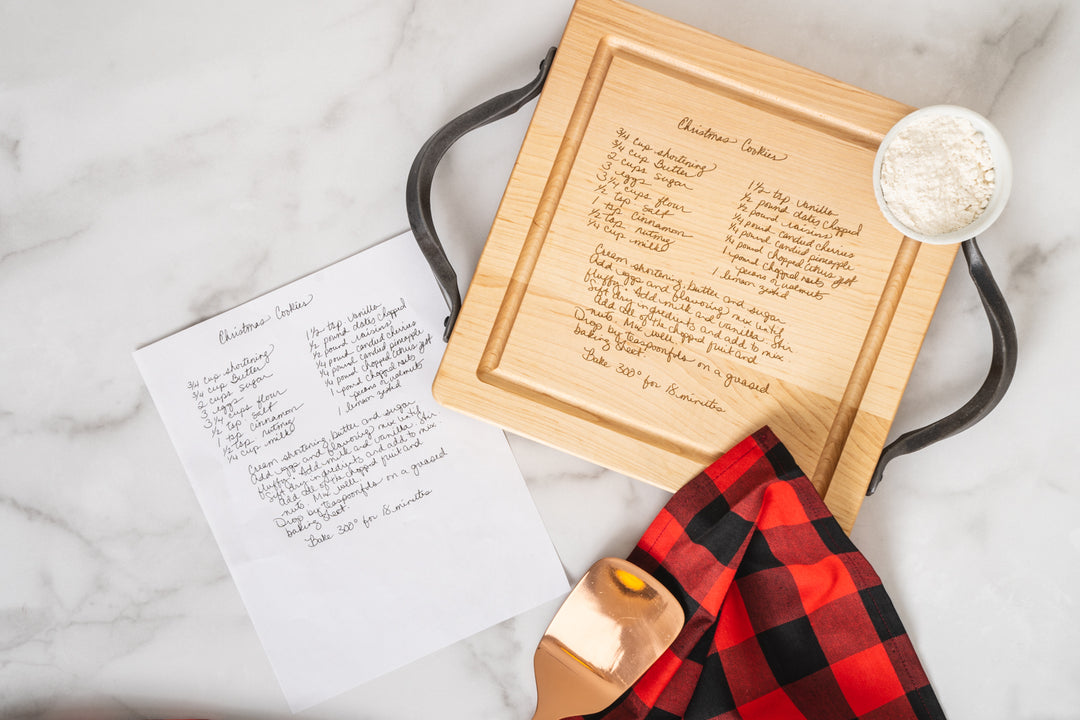 Christmas Cookies
3/4 cup shortening
3/4 cup Butter
2 cups sugar
3 eggs
3 1/4 cups flour
1/2 tsp salt
1 tsp cinnamon
1/2 tsp nutmeg
1/4 cup milk
1 1/2 tsp vanilla
1/2 pound dates chopped
1/2 pound raisins
1/4 pound candied cherries
1/4 pound candied pineapple
1/4 pound chopped citrus
1 pound chopped nuts
pecans or walnuts
1 lemon zested
Cream shortening, butter and sugar
add eggs and flavoring mix until
fluffy. Add milk and vanilla. Stir
Sift dry ingredients and add to mix.
add all of the chopped fruit and
nuts. Mix well.
Drop by teaspoonfuls on a greased
baking sheet.
Bake 300° for 18 minutes
Christmas Cookies
3/4 cup shortening
3/4 cup Butter
2 cups sugar
3 eggs
3 1/4 cups flour
1/2 tsp salt
1 tsp cinnamon
1/2 tsp nutmeg
1/4 cup milk
1 1/2 tsp vanilla
1/2 pound dates chopped
1/2 pound raisins
1/4 pound candied cherries
1/4 pound candied pineapple
1/4 pound chopped citrus
1 pound chopped nuts
pecans or walnuts
1 lemon zested
Cream shortening, butter and sugar
add eggs and flavoring mix until
fluffy. Add milk and vanilla. Stir
Sift dry ingredients and add to mix.
add all of the chopped fruit and
nuts. Mix well.
Drop by teaspoonfuls on a greased
baking sheet.
Bake 300° for 18 minutes